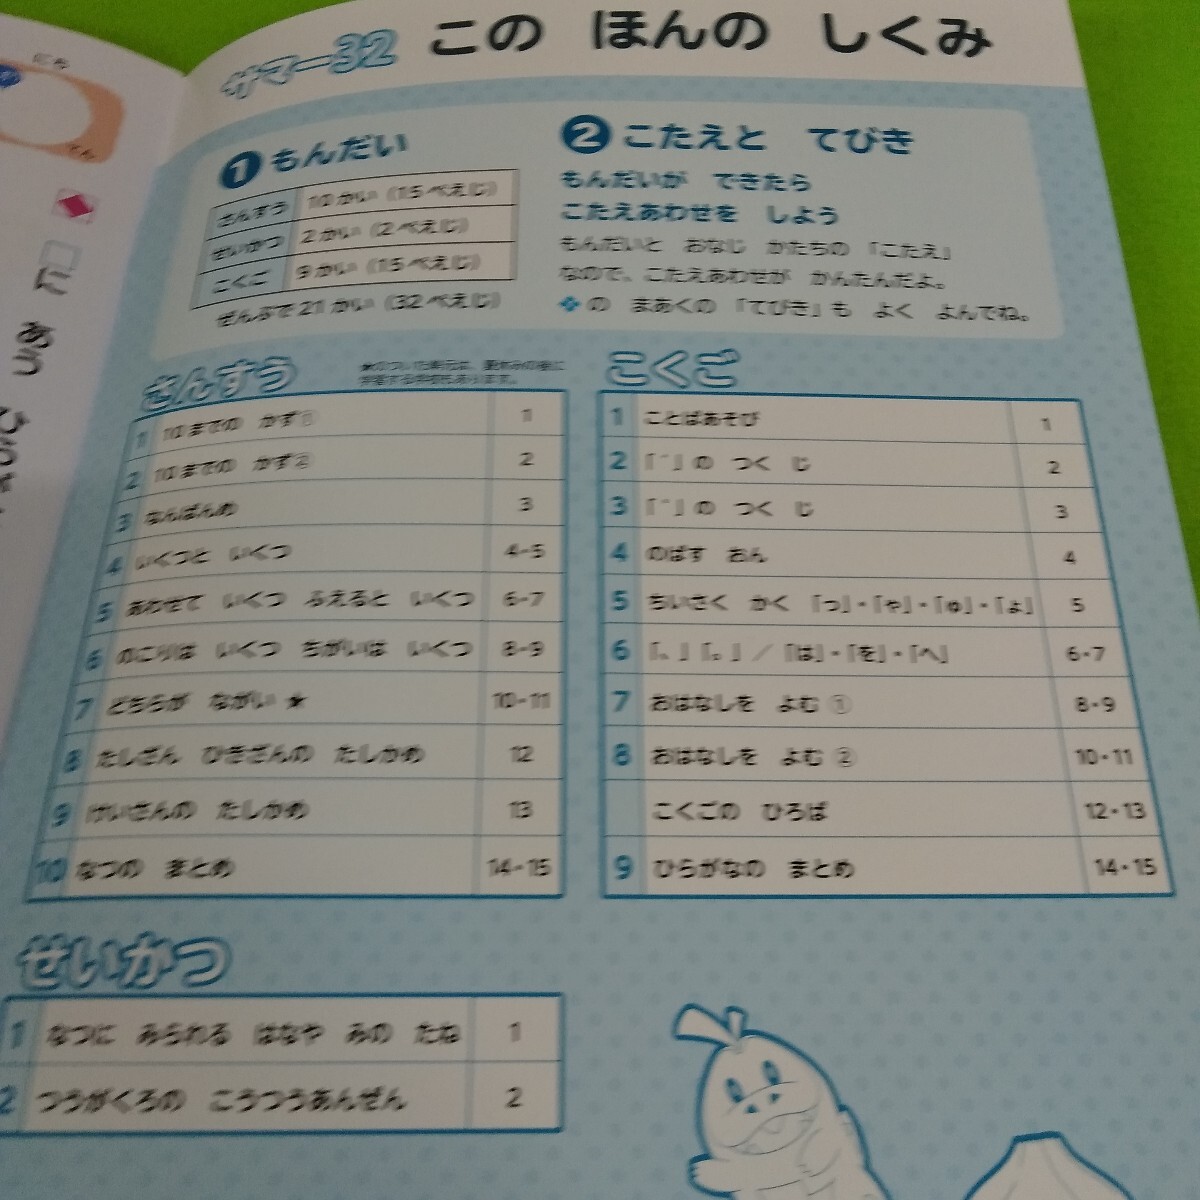 サマー32 このほんのしくみ
1 もんだい
さんすう 10かい(15ぺえじ)
せいかつ 2かい(2ぺえじ)
こくご 9かい(15ぺえじ)
ぜんぶで21かい(32ぺえじ)
2 こたえと てびき
もんだいが できたら
こたえあわせを しよう
もんだいと おなじ かたちの「こたえ」
なので、こたえあわせが かんたんだよ。
の まあくの「てびき」も よく よんでね。
さんすう
★のついた単元は、夏休みの後に
学習する学校もあります。
1 10までの かず① 1
2 10までの かず② 2
3 なんばんめ 3
4 いくつと いくつ 4-5
5 あわせて いくつ ふえると いくつ 6-7
6 のこりは いくつ ちがいは いくつ 8-9
7 どちらが ながい★ 10-11
8 たしざん ひきざんの たしかめ 12
9 けいさんの たしかめ 13
10 なつの まとめ 14-15
こくご
1 ことばあそび 1
2 「゛」の つく じ 2
3 「゜」の つく じ 3
4 のばす おん 4
5 ちいさく かく「っ」・「ゃ」・「ゅ」・「ょ」 5
6 「、」「。」/「は」・「を」・「へ」 6・7
7 おはなしを よむ① 8・9
8 おはなしを よむ② 10・11
こくごの ひろば 12・13
9 ひらがなの まとめ 14・15
せいかつ
1 なつに みられる はなや みの たね 1
2 つうがくろの こうつうあんぜん 2